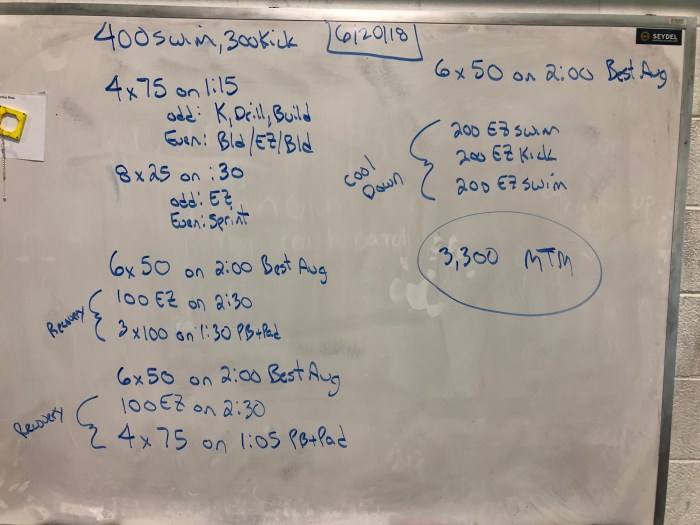 400 Swim, 300 Kick
6/20/18
4 x 75 on 1:15
odd: K, Drill, Build
Even: Bld/EZ/Bld
8 x 25 on :30
odd: EZ
Even: Sprint
6x50 on 2:00 Best Avg
Recovery
100 EZ on 2:30
3 x 100 on 1:30 PB+Pad
6x50 on 2:00 Best Avg
Recovery
100 EZ on 2:30
4 x 75 on 1:05 PB+Pad
SEYDEL
6 x 50 on 2:00 Best Avg
Cool
Down
200 EZ swim
200 EZ Kick
200 EZ swim
3,300 MTM